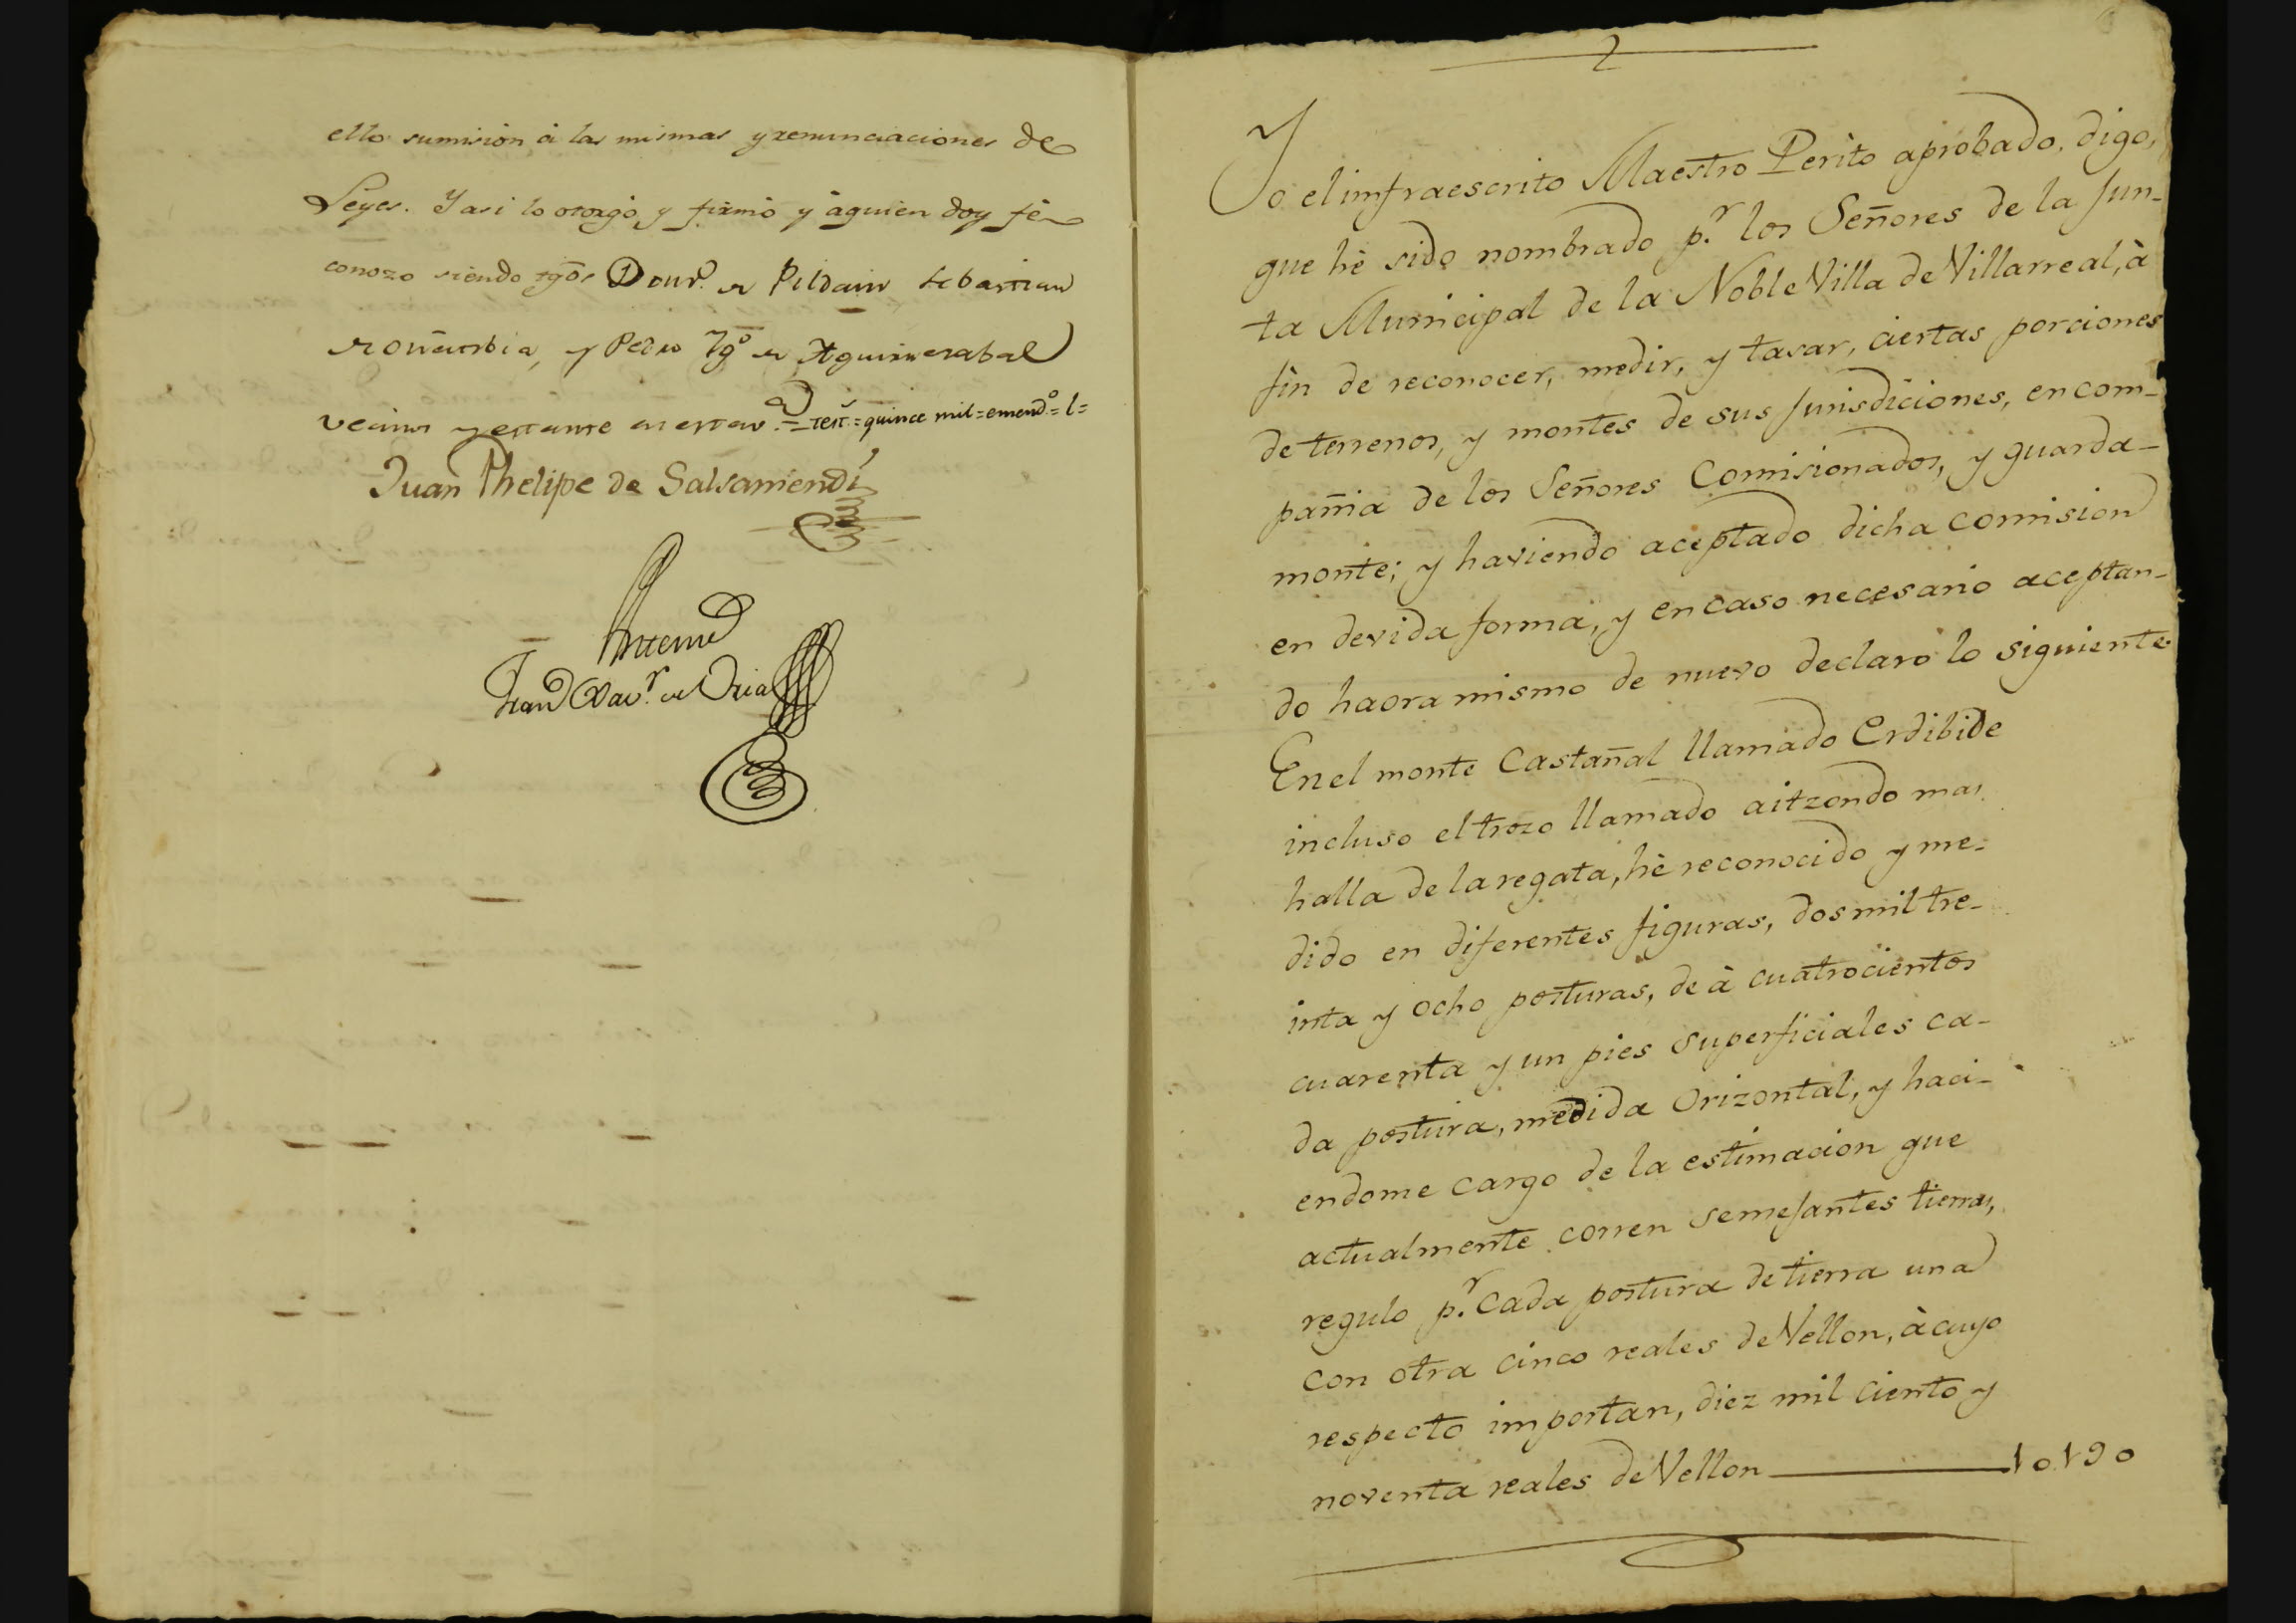 ello sumisión á las mismas y renunciaciones de
Leyes. Y asi lo otorgó y firmó y áquien doy fé
conozo siendo tgōs Domº. de Pildain Sebastian
de y Pedro Igº de Aguirrezabal
vecinos y estante en esta vª.= test.=quince mil=emendº=l=
Juan Phelipe de Salsamendi
Antemi
Franº Xavʳ. de Oria
2
Yo el imfraescrito Maestro Perito aprobado, digo,
que hè sido nombrado p.ʳ los Señores de la Jun-
ta Municipal de la Noble Villa de Villarreal, à
fin de reconocer, medir, y tasar, ciertas porciones
de terrenos, y montes de sus Jurisdiciones, en com-
pañia de los Señores Comisionados, y guarda-
monte; y haviendo aceptado dicha comision
en devida forma, y en caso necesario aceptan-
do haora mismo de nuevo declaro lo siguiente.
En el monte Castañal llamado Erdibide
incluso el trozo llamado aitzondo mas
halla de la regata, hè reconocido y me-
dido en diferentes figuras, dos mil tre-
inta y ocho posturas, de à cuatrocientos
cuarenta y un pies superficiales ca-
da postura, medida Orizontal, y haci-
endome cargo de la estimacion que
actualmente corren semejantes tierras,
regulo p.ʳ cada postura de tierra una
con otra cinco reales de Vellon, à cuyo
respecto importan, diez mil ciento y
noventa reales de Vellon 10.190